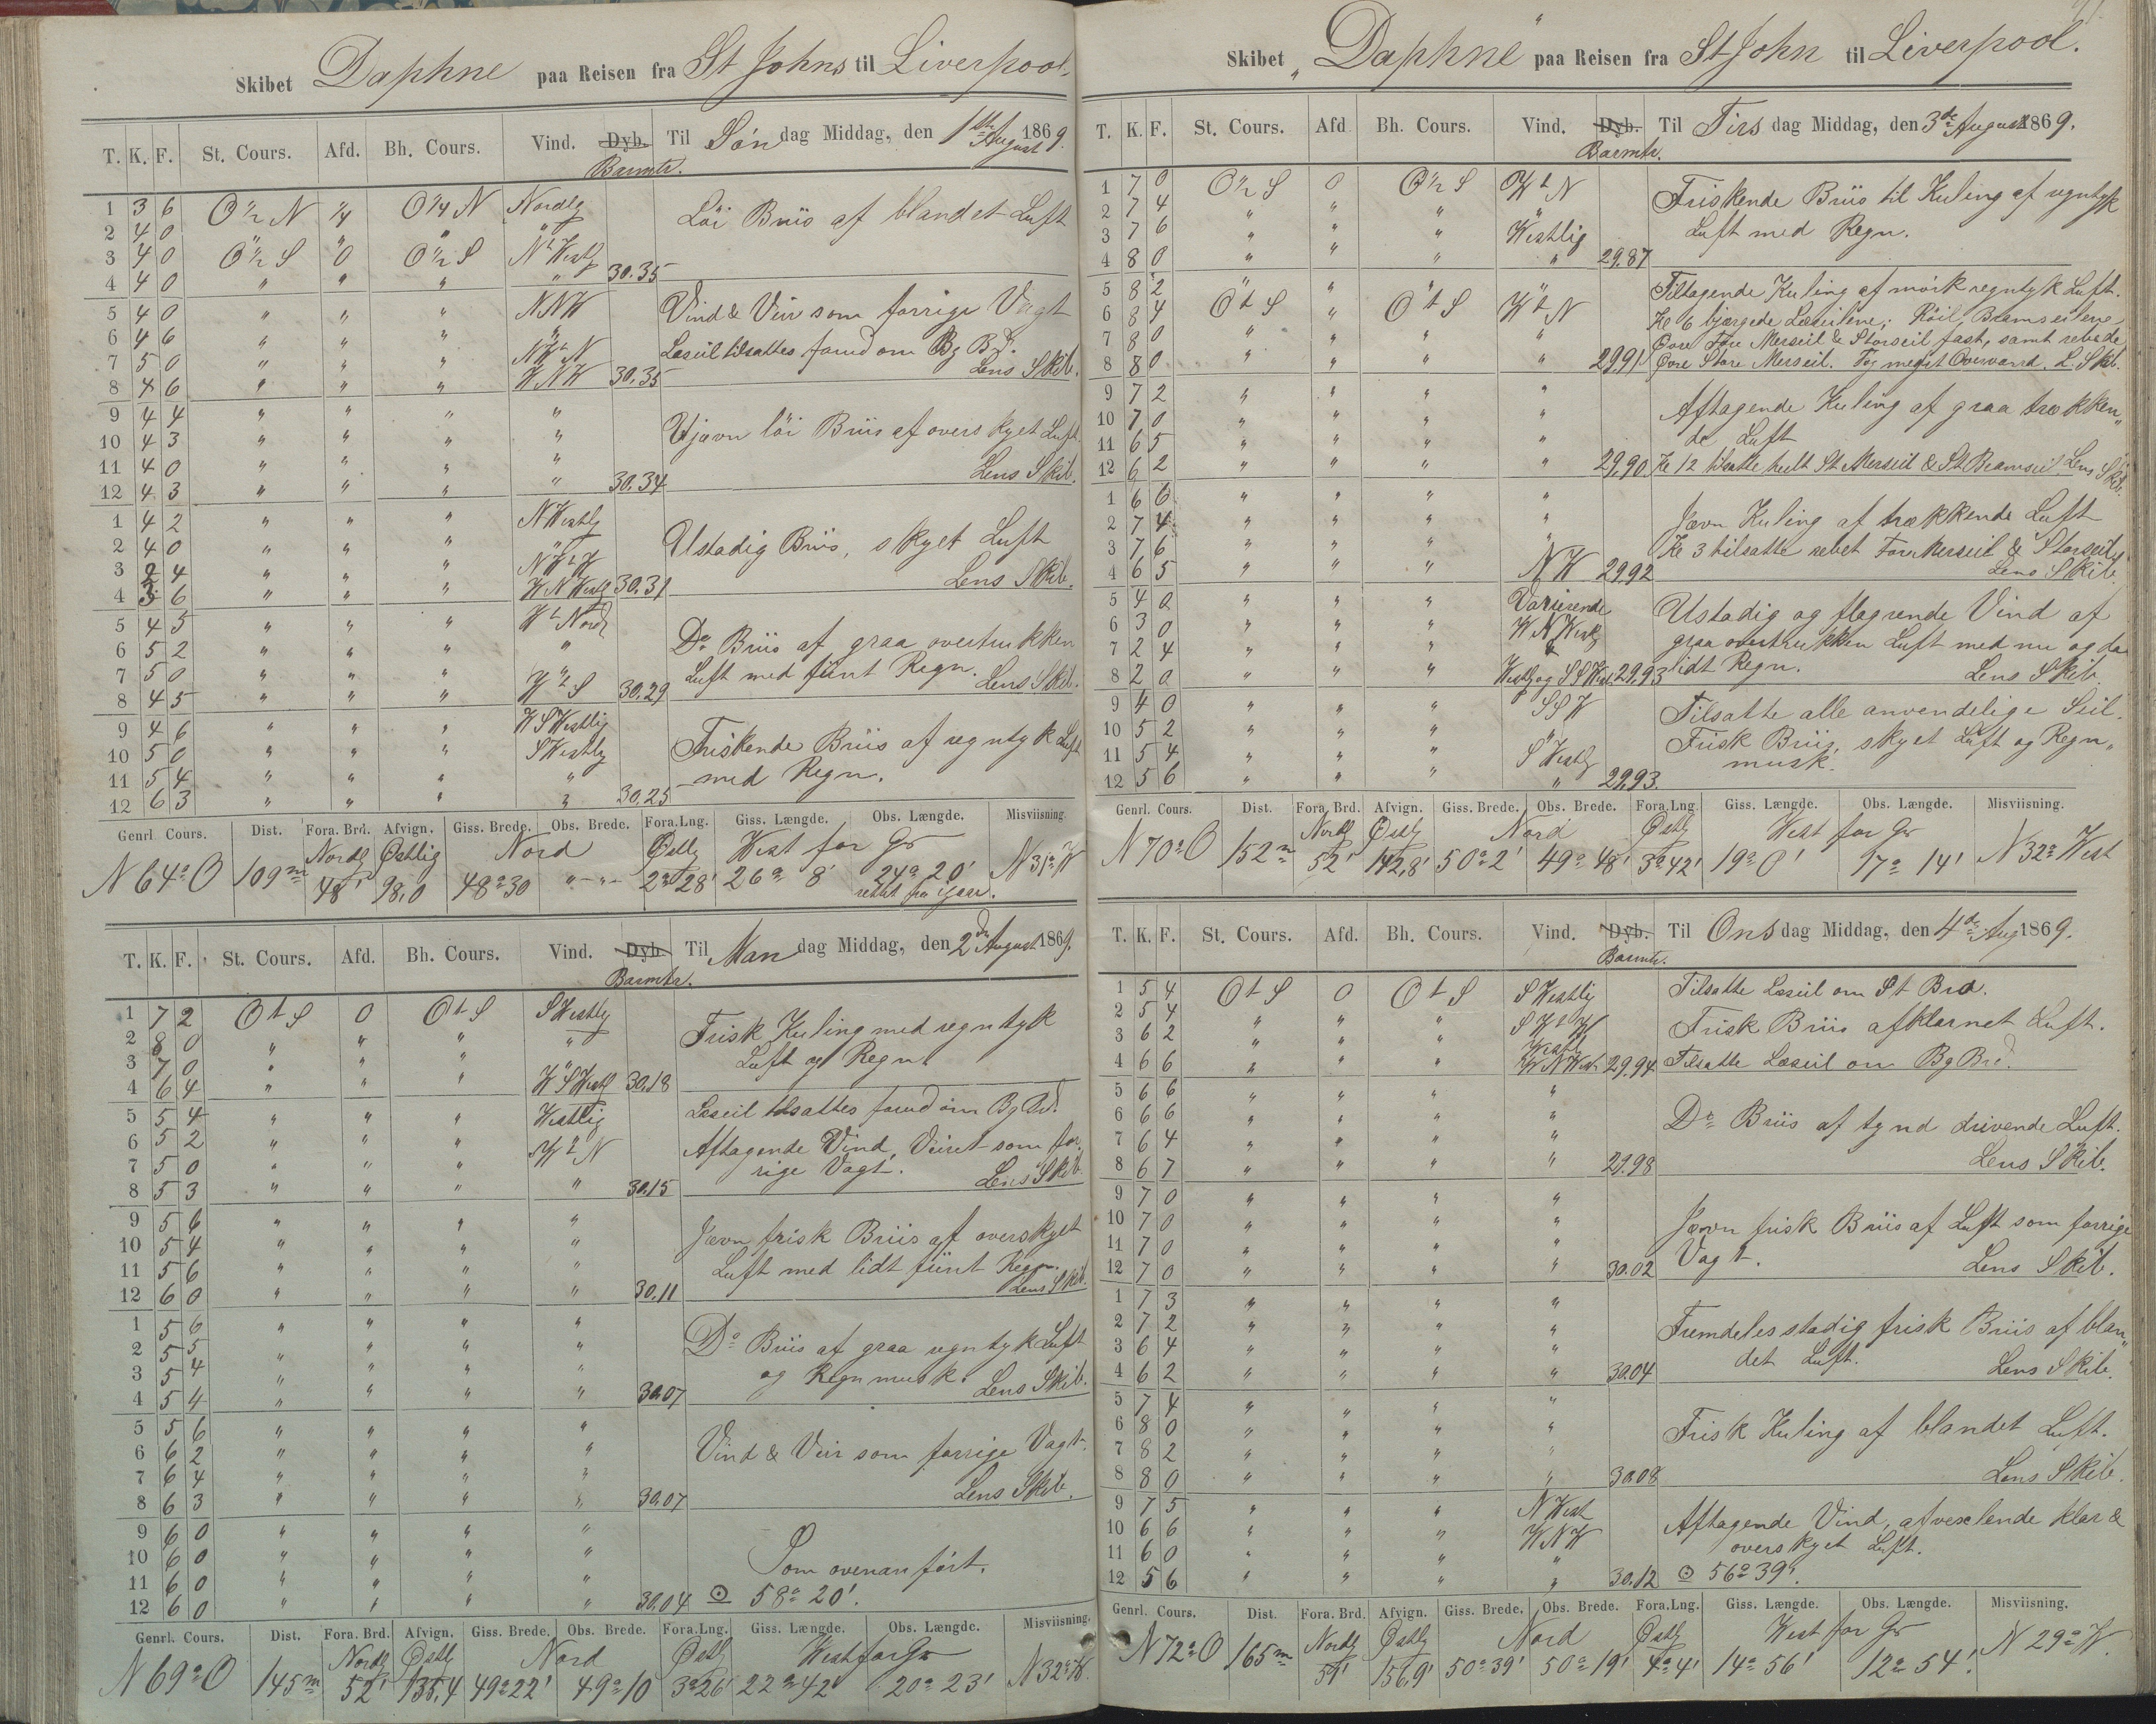 Skibet Daphne paa Reisen fra St Johns til Liverpool.
T. K. F. St. Cours. Afd. Bh. Cours. Vind. Dyb. Til Søn dag Middag, den 1ste August 1869.
Barmtr.
1 3 6 O ½ N ¼ O ¼ N Nordlg
2 4 0 " " " "
Löi Briis af blandet Luft
3 4 0 O ½ S 0 O ½ S Nt Westlg
4 4 0 " " " " 30.35
5 4 0 " " " NNW Vind & Veir som forrige Vagt
6 4 6 " " " "
7 5 0 " " " NWtN Læseil tilsattes forud om Bg Bd.
8 4 6 " " " WNW 30.35 Lens Skib.
9 4 4 " " " "
10 4 3 " " " " Ujævn löi Briis af overskyet Luft
11 4 0 " " " "
12 4 3 " " " " 30.34 Lens Skib.
1 4 2 " " " NWestlg
2 4 0 " " " " Ustadig Briis, skyet Luft
3 2 4 " " " NWtW
4 3 6 " " " WNWestlg 30.31 Lens Skib.
5 4 5 " " " Wt Nordlg
6 5 2 " " " " Do Briis af graa overtrukken
7 5 0 " " " " Luft med fiint Regn. Lens Skib.
8 4 5 " " " WtS 30.29
9 4 6 " " " WSWestlig
10 5 0 " " " SWestlg Friskende Briis af regntyk Luft
11 5 4 " " " " med Regn.
12 6 3 " " " " 30.25
Genrl. Cours. Dist. Fora. Brd. Afvign. Giss. Brede. Obs. Brede. Fora. Lng. Giss. Længde. Obs. Længde. Misviisning.
Nordlg Østlig Nord Østlg West for Gr
N 64° O 109m 48' 98,0 48° 30 " - " - 2° 28' 26° 8' 24° 20' N 31° W
rettet fra Igaar.
T. K. F. St. Cours. Afd. Bh. Cours. Vind. Dyb. Til Man dag Middag, den 2den August 1869.
Barmtr.
1 7 2 O t S 0 O t S SWestlg
2 8 0 " " " " Frisk Kuling med regntyk
3 7 0 " " " " Luft og Regn
4 6 4 " " " WSWestlg 30.18
5 5 4 " " " Westlig Læseil tilsattes forud om Bg Bd.
6 5 2 " " " WtN Aftagende Vind, Veiret som for-
7 5 0 " " " " rige Vagt. Lens Skib.
8 5 3 " " " " 30.15
9 5 6 " " " " Jævn frisk Briis af overskyet
10 5 4 " " " "
11 5 6 " " " " Luft med lidt fiint Regn.
12 6 0 " " " " 30.11 Lens Skib.
1 5 6 " " " "
2 5 5 " " " " Do Briis af graa regntyk Luft
3 5 4 " " " " og Regnmusk. Lens Skib.
4 5 4 " " " " 30.07
5 5 6 " " " "
6 6 2 " " " " Vind & Veir som forrige Vagt.
7 6 4 " " " "
8 6 3 " " " " 30.07 Lens Skib.
9 6 0 " " " "
10 6 0 " " " " Som ovenanfört.
11 6 0 " " " "
12 6 0 " " " " 30.04 ⊙ 58° 20'.
Genrl. Cours. Dist. Fora. Brd. Afvign. Giss. Brede. Obs. Brede. Fora. Lng. Giss. Længde. Obs. Længde. Misviisning.
Nordlg Østlg Nord Østlg West for Gr
N 69° O 145m 52' 135,4 49° 22' 49° 10 3° 26' 22° 42' 20° 23' N 32° W.
Skibet "Daphne" paa Reisen fra St John til Liverpool.
T. K. F. St. Cours. Afd Bh. Cours. Vind. Dyb. Til Tirs dag Middag, den 3de August 1869.
Barmtr.
1 7 0 O ½ S 0 O ½ S WtN Friskende Briis til Kuling af regntyk
2 7 4 " " " "
3 7 6 " " " Westlig Luft med Regn.
4 8 0 " " " " 29.87
5 8 2 " " " " Tiltagende Kuling af mörk regntyk Luft.
6 8 4 O t S " O t S WtN Kl 6 bjærgede Læseilene; Röil, Bramseilene
7 8 0 " " " " Øvre Fore Merseil & Storseil fast, samt rebede
8 8 0 " " " " 29.91 Øvre Store Merseil. Tog meget Overvand. L. Skib.
9 7 2 " " " "
10 7 0 " " " " Aftagende Kuling af graa trækken"
11 6 5 " " " " de Luft
12 6 2 " " " " 29.90. Kl 12 tilsatte heelt St Merseil & St Bramseil Lens Skib.
1 6 6 " " " "
2 7 4 " " " " Jævn Kuling af trækkende Luft
3 7 6 " " " " Kl 3 tilsatte rebet Fore Merseil & Storseil
4 6 5 " " " NW 29.92 Lens Skib.
5 4 0 " " " Varierende Ustadig og flagrende Vind af
6 3 0 " " " WNWestlg
7 2 4 " " " & graa overtrukken Luft med nu og da
8 2 0 " " " Westlg og SSWest. 29.93 lidt Regn. Lens Skib.
9 4 0 " " " SSW Tilsatte alle anvendelige Seil.
10 5 2 " " " " Frisk Briis, skyet Luft og Regn"
11 5 4 " " " SWestlg musk.
12 5 6 " " " " 29.93.
Genrl. Cours. Dist. Fora. Brd. Afvign. Giss. Brede. Obs. Brede. Fora. Lng. Giss. Længde. Obs. Længde. Misviisning.
Nordlg Østlg Nord Østlg West for Gr
N 70° O 152m 52' 142,8' 50° 2' 49° 48' 3° 42' 19° 0' 17° 14' N 32° West
T. K. F. St. Cours. Afd. Bh. Cours. Vind. Dyb. Til Ons dag Middag, den 4de Aug 1869.
Barmtr.
1 5 4 O t S 0 O t S SWestlig Tilsatte Læseil om St Bra.
2 5 4 " " " SWtW Frisk Briis afklarnet Luft.
3 6 2 " " " Westlg
4 6 6 " " " WNWest. 29.94 Tilsatte Læseil om Bg Brd.
5 6 6 " " " "
6 6 6 " " " " Do Briis af tynd drivende Luft.
7 6 4 " " " "
8 6 7 " " " " 29.98 Lens Skib.
9 7 0 " " " "
10 7 0 " " " " Jævn frisk Briis af Luft som forrige
11 7 0 " " " " Vagt.
12 7 0 " " " " 30.02 Lens Skib.
1 7 3 " " " "
2 7 2 " " " " Fremdeles stadig frisk Briis af blan"
3 6 4 " " " " det Luft.
4 6 2 " " " " 30.04 Lens Skib.
5 7 4 " " " "
6 8 0 " " " " Frisk Kuling af blandet Luft.
7 8 2 " " " "
8 8 0 " " " " 30.08 Lens Skib.
9 7 5 " " " NWest
10 6 6 " " " WNW Aftagende Vind, afvexlende klar &
11 6 0 " " " " overskyet Luft.
12 5 6 " " " " 30.12 ⊙ 56° 39'.
Genrl. Cours. Dist. Fora. Brd. Afvign. Giss. Brede. Obs. Brede. Fora. Lng. Giss. Længde. Obs. Længde. Misviisning.
Nordlg Østlg Nord Østlg West for Gr
N 72° O 165m 51' 156,9' 50° 39' 50° 19' 4° 4' 14° 56' 12° 54'. N 29° W.